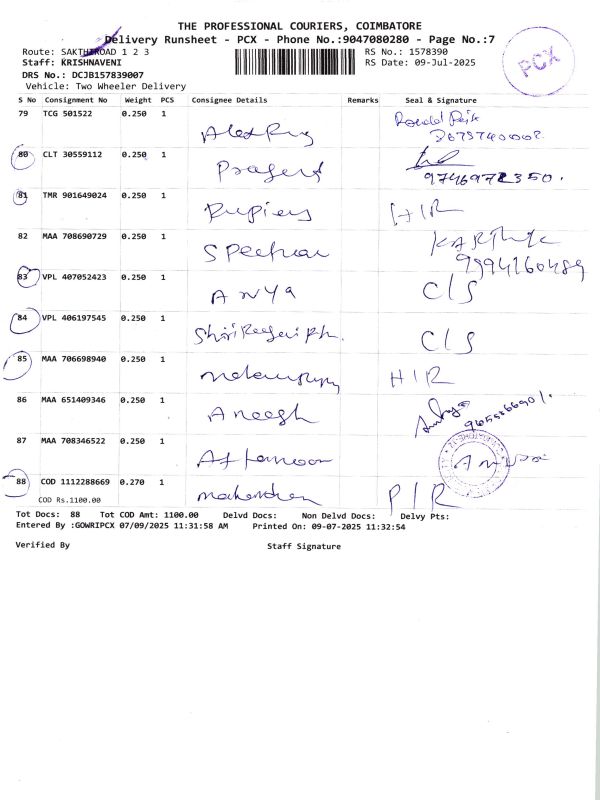 THE PROFESSIONAL COURIERS, COIMBATORE
Delivery Runsheet - PCX - Phone No.:9047080280 - Page No.:7
Route: SAKTHIROAD 1 2 3
RS No.: 1578390
Staff: KRISHNAVENI
RS Date: 09-Jul-2025
PCX
DRS No.: DCJB157839007
Vehicle: Two Wheeler Delivery
S No Consignment No Weight PCS Consignee Details Remarks Seal & Signature
79 TCG 501522 0.250 1
80 CLT 30559112 0.250 1
81 TMR 901649024 0.250 1 HIR
82 MAA 708690729 0.250 1 KARTHIK
83 VPL 407052423 0.250 1 ANYA C/S
84 VPL 406197545 0.250 1 C/S
85 MAA 706698940 0.250 1 HIR
86 MAA 651409346 0.250 1 Aneegh
87 MAA 708346522 0.250 1
88 COD 1112288669 0.270 1 Mahendran P/R
COD Rs.1100.00
Tot Docs: 88 Tot COD Amt: 1100.00 Delvd Docs: Non Delvd Docs: Delvy Pts:
Entered By :GOWRIPCX 07/09/2025 11:31:58 AM Printed On: 09-07-2025 11:32:54
Verified By Staff Signature